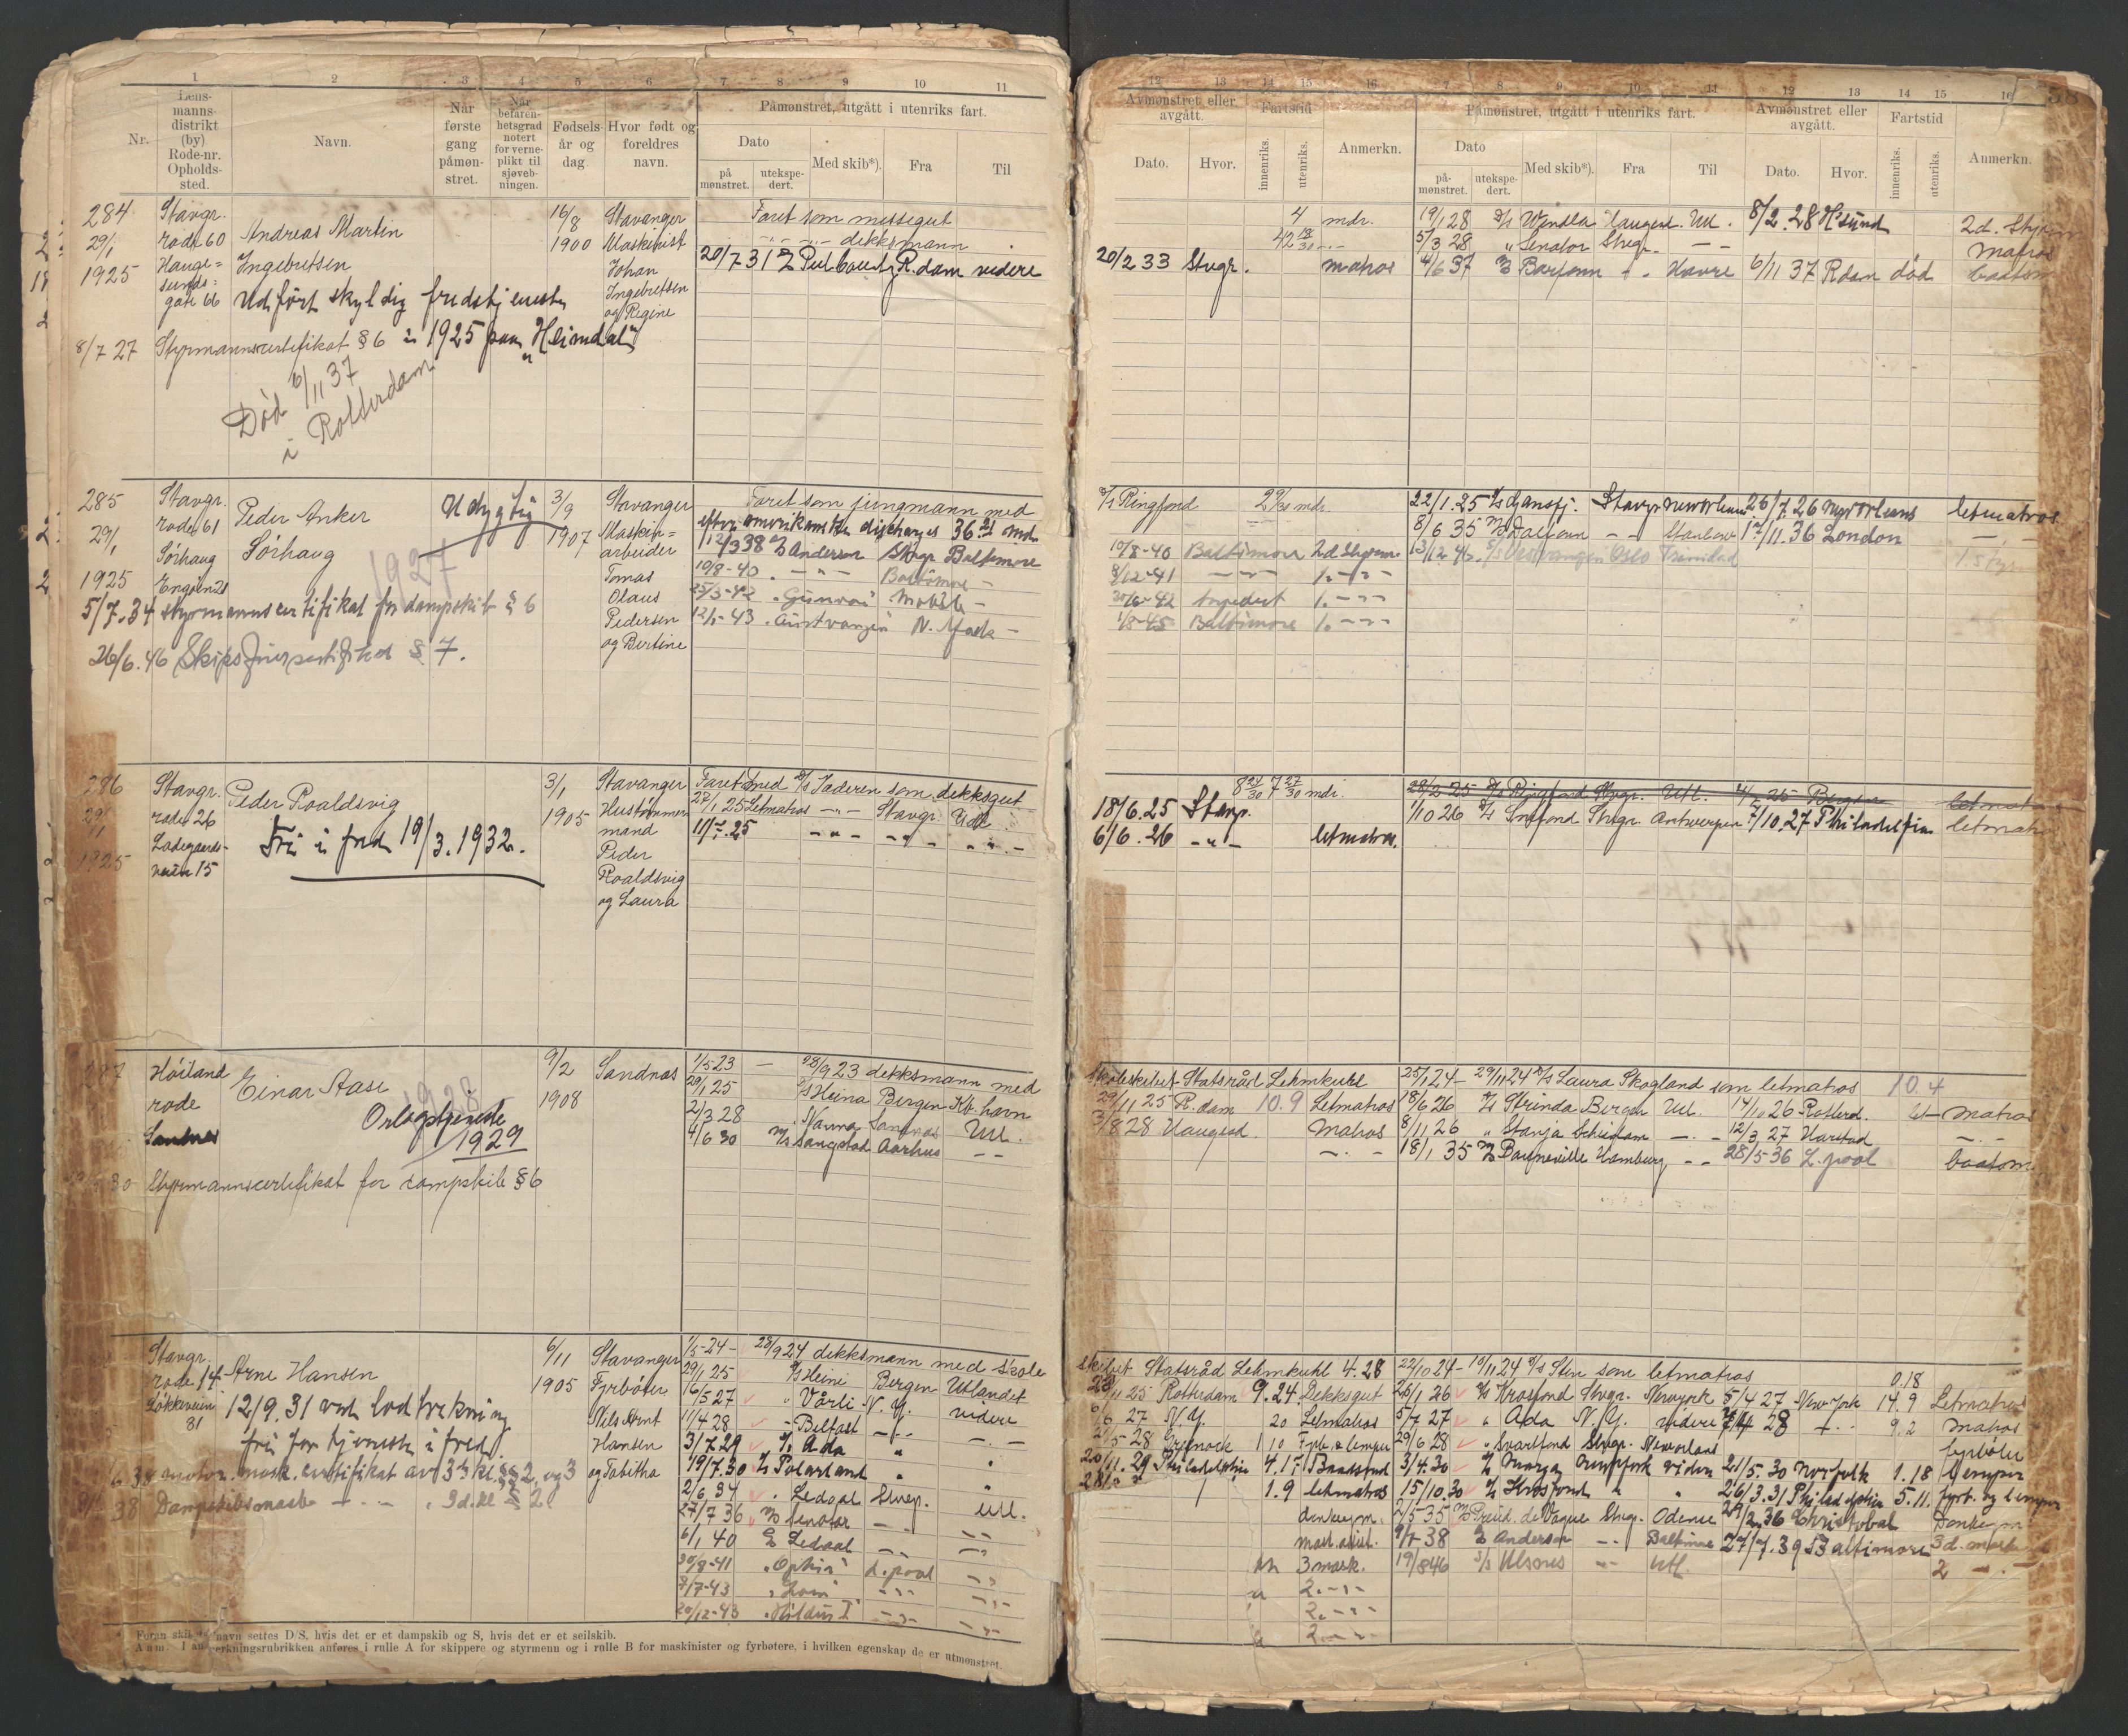 1 2 3 4 5 6 7 8 9 10 11
Nr.
Lens-
manns-
distrikt
(by)
Rode-nr.
Opholds-
sted.
Navn.
Når
første
gang
påmøn-
stret.
Når
befaren-
hetsgrad
notert
for verne-
plikt til
sjøveb-
ningen.
Fødsels-
år og
dag
Hvor født og
foreldres
navn.
Påmønstret, utgått i utenriks fart.
Dato
på
mønstret.
utekspe-
dert.
Med skib*).
Fra
Til
284
29/1
1925
Stavgr.
rode 60
Hauge=
sunds=
gate 66
Andreas Martin
Ingebretsen
Utført skyldig fredstjeneste
i 1925 paa "Heimdal"
8/7 27 Styrmannscertifikat § 6
Død 6/11 37
i Rotterdam
16/8
1900
Stavanger
Maskinist
Johan
Ingebretsen
og Regine
Faret som messegut
-"- -"- dekksmann
20/7 31 R.dam videre
285
29/1
1925
Stavgr.
rode 61
Sörhaug
Peder Anker
Sörhaug
Udygtig
1927
5/7.34 styrmannscertifikat for dampskib § 6
26/6.46 Skipsførersertifikat § 7.
3/9
1907
Stavanger
Maskin=
arbeider
Tomas
Olaus
Pedersen
og Bertine
Faret som jungmann med
efter amerikanske discharges 36 21 md
1/12 38 Anderson Stvgr Baltimore
19/8-40 - " - Baltimore -
25/3-42 "Gunvor" Mobile -
12/1-43 "Austvangen" N. York -
286
29/1
1925
Stavgr.
rode 26
Ladegaards-
veien 15
Peder Roaldsvig
Fri i fred 19/3.1932.
3/1
1905
Stavanger
Hustømmer
mand
Peder
Roaldsvig
og Laura
Faret med D/S Jæderen som dekksgut
27/1 25 Letmatros -"- Stavgr. Utl
11/7.25 -"- -"- -"-
287
Höiland
rode
Sandnes
Einar Aase
1928
Orlogstjeneste
1929
30 Styrmannscertifikat for dampskib § 6
9/2
1908
Sandnes
1/5 23 - 28/9 23 dekksmann med
29/1 25 D/S Heina Bergen Kb.havn
2/3 28 " Nanna Sandnes Utl.
4/6 30 M/S Sangstad Aarhus - -
Stavgr.
rode 14
Lökkeveien
81
Arne Hansen
12/9.31 ved lodtrekning
fri for tjeneste i fred.
6.34 motor. mask. certifikat av 3dj kl. §§ 2 og 3
38 Dampskibsmask - " - 3d. kl § 2
6/11
1905
Stavanger
Fyrböter
Nils Arnt
Hansen
og Tabitha
1/5-24 - 28/9 24 dekksmann med skole
29/1 25 D/S Heini Bergen Utlandet
16/5 27 " Vårli N. Y. videre
11/4 28 - Belfast -"- -"-
3/7.29 D/S Ada " "
19/7.30 D/S Polarland " "
2/6 34 " Ledaal Stvgr. Utl.
27/7 36 M/S Senator - - - -
6/1 40 D/S Ledaal - - - -
30/8-41 "Ophir" L.pool -"-
8/7-43 "Lom" -"- -"-
20/12-43 "Hildur I" -"- -"-
Foran skibets navn settes D/S, hvis det er et dampskib og S, hvis det er et seilskib.
Anm. I anmerkningsrubrikken anføres i rulle A for skippere og styrmenn og i rulle B for maskinister og fyrbøtere, i hvilken egenskap de er utmønstret.
12 13 14 15 16 7 8 9 10 11 12 13 14 15 16
Avmønstret eller
avgått.
Dato. Hvor.
Fartstid
innenriks.
utenriks.
Anmerkn.
Påmønstret, utgått i utenriks fart.
Dato
på-
mønstret.
utekspe-
dert.
Med skib*).
Fra
Til
Avmønstret eller
avgått.
Dato. Hvor.
Fartstid
innenriks.
utenriks.
Anmerkn.
4 mdr. 19/1 28 D/S Wendla Haugesd. Utl. 8/2.28 H.sund 2d. Styrm
42 18/30 -"- 5/3 28 " Senator Stvgr. - - matros
20/2 33 Stvgr. matros 4/6 37 Barfonn -"- Havre 6/11 37 R.dam død baatsm
D/S Ringfond 2 29/30 mdr. 22/1.25 Stavgr neworleans 26/7.26 neworleans letmatros
8/6 35 M/S Dalfonn - - Stanlow 12/11.36 London -"-
19/8-40 Baltimore 2d Styrm. 13/12 46 S/S Vestvangen Oslo Trinidad 1.Styr
8/12-41 - " - 1. -"-
30/6-42 1. -"-
1/8-45 Baltimore 1. -"-
8 24/30 7 27/30 mdr. 28/2 25 D/S Ringfond Stvgr. Utl. 4/7 25 Bergen letmatros
18/6.25 Stavgr. 1/10 26 D/S Snefond Stvgr. Antwerpen 7/10.27 Philadelfia letmatros
6/6.26 -"- letmatros.
skoleskibet Statsråd Lehmkuhl 25/1 24 - 29/11 24 D/S Laura Skogland som letmatros 10.4
29/11 25 R.dam 10.9 Letmatros 18/6 26 D/S Strinda Bergen Utl. 14/10 26 Rotterd. let- matros
3/8 28 Haugesd. matros 8/11 26 " Stanja Schiedam -"- 12/3 27 Harstad -"-
-"- 18/1 35 M/S Bonneville Hamburg - - 28/5 36 L.pool baatsm
skibet Statsråd Lehmkuhl 4.28 22/10 24 - 10/11 24 D/S Sten som letmatros 0.18
25 Rotterdam 9.24 Dekksgut 26/1 26 D/S Krosfond Stvgr. Newyork 5/4 27 New York 14.9 Letmatros
27 N.Y. 20 Letmatros 5/7 27 " Ada N.Y. videre 28 -"- 9.2 matros
28 Grenock 1 10 Fyrb. & lemper 29/6 28 " Svartfond Stvgr. Neworleans fyrböter
20/11.29 Philadelphia 4.17 Baadsmd 3/4.30 D/S Margay Newyork videre 21/5.30 Norfolk 1.18 lemper
1.9 letmatros 15/10.30 D/S Krosfond " " 26/3.31 Philadelphia 5.11. fyrb. og lemper
donkeym. 2/5-35 M/S Presid. de Vogue Stvgr. Odense 29/2.36 Christobal Donkeym
mask.assist. 9/7-38 D/S Anderson - - Baltimore 27/7.39 Baltimore 3d. mask
3 mask. 19/8 46 S/S Ulsnes -"- Utl. 2 -"-
2. -"-
2. -"-
2. -"-